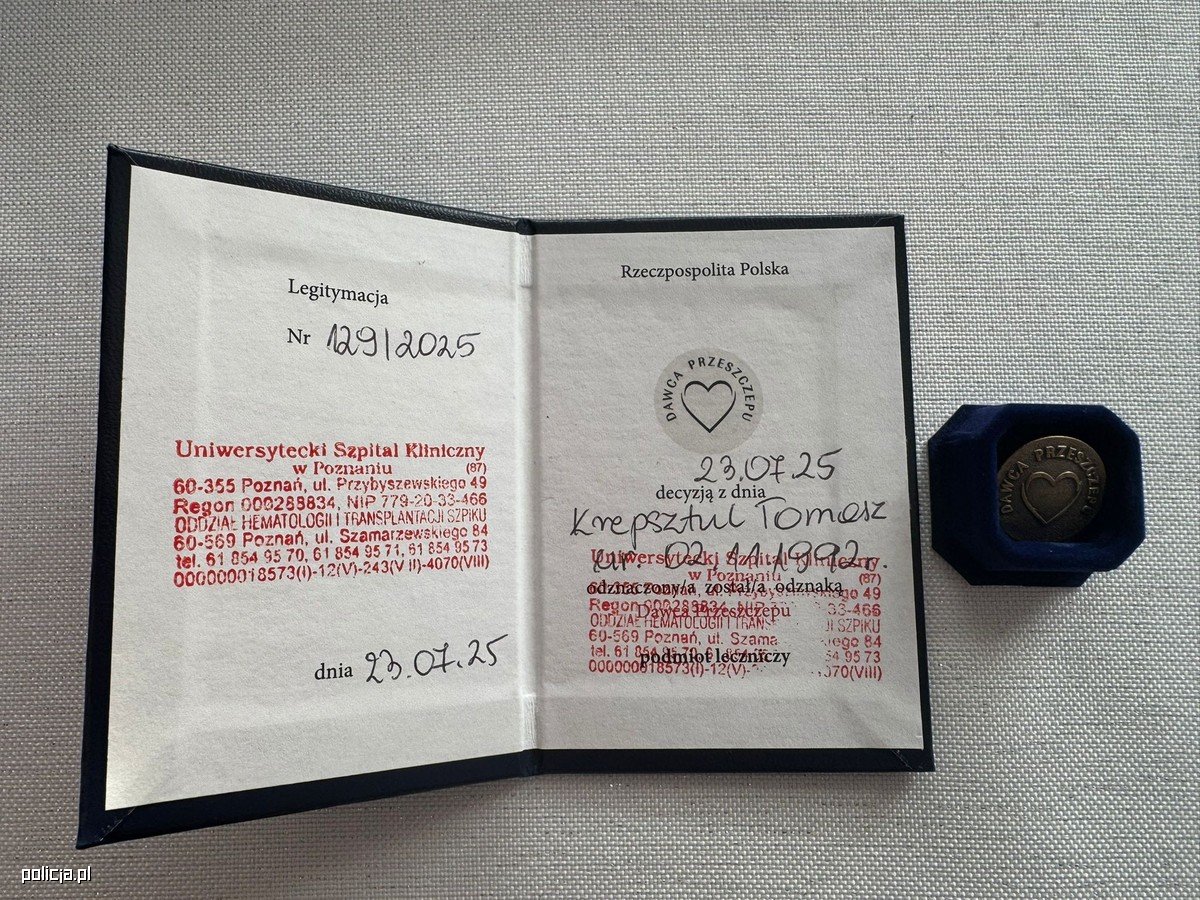 Legitymacja
Nr 129/2025
Uniwersytecki Szpital Kliniczny
w Poznaniu (87)
60-355 Poznań, ul. Przybyszewskiego 49
Regon 000288834, NIP 779-20-33-466
ODDZIAŁ HEMATOLOGII I TRANSPLANTACJI SZPIKU
60-569 Poznań, ul. Szamarzewskiego 84
tel. 61 854 95 70, 61 854 95 71, 61 854 95 73
000000018573(I)-12(V)-243(VII)-4070(VIII)
dnia 23.07.25
Rzeczpospolita Polska
DAWCA PRZESZCZEPU
23.07.25
decyzją z dnia
Krepsztul Tomasz
ur. 02.11.1992r.
Uniwersytecki Szpital Kliniczny
w Poznaniu (87)
odznaczony/a został/a odznaką
60-355 Poznań, ul. Przybyszewskiego 49
Regon 000288834, NIP 33-466
Dawca Przeszczepu
ODDZIAŁ HEMATOLOGII I TRANS SZPIKU
60-569 Poznań, ul. Szama iego 84
tel. 61 95 73
podmiot leczniczy
000000018573(I)-12(V)- 070(VIII)
DAWCA PRZESZCZEPU
policja.pl